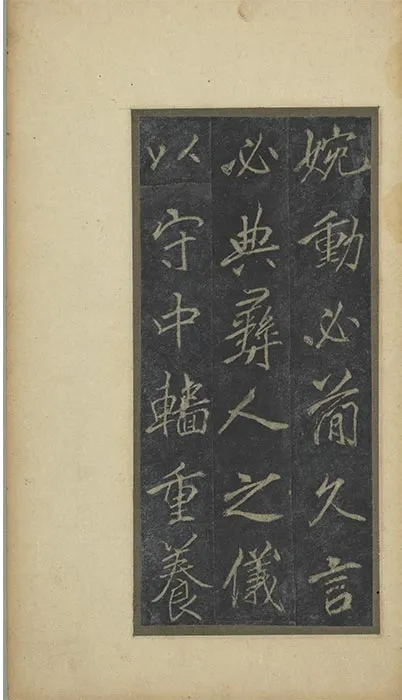 婉動必簡久言
必典彝人之儀
以守中轖重養